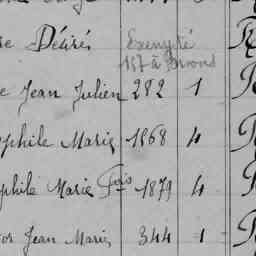 re Désiré Exempté
157 à
e Jean Julien 282 1
ophile Marie 1868 4
phile Marie Fois 1879 4
or Jean Marie 344 1